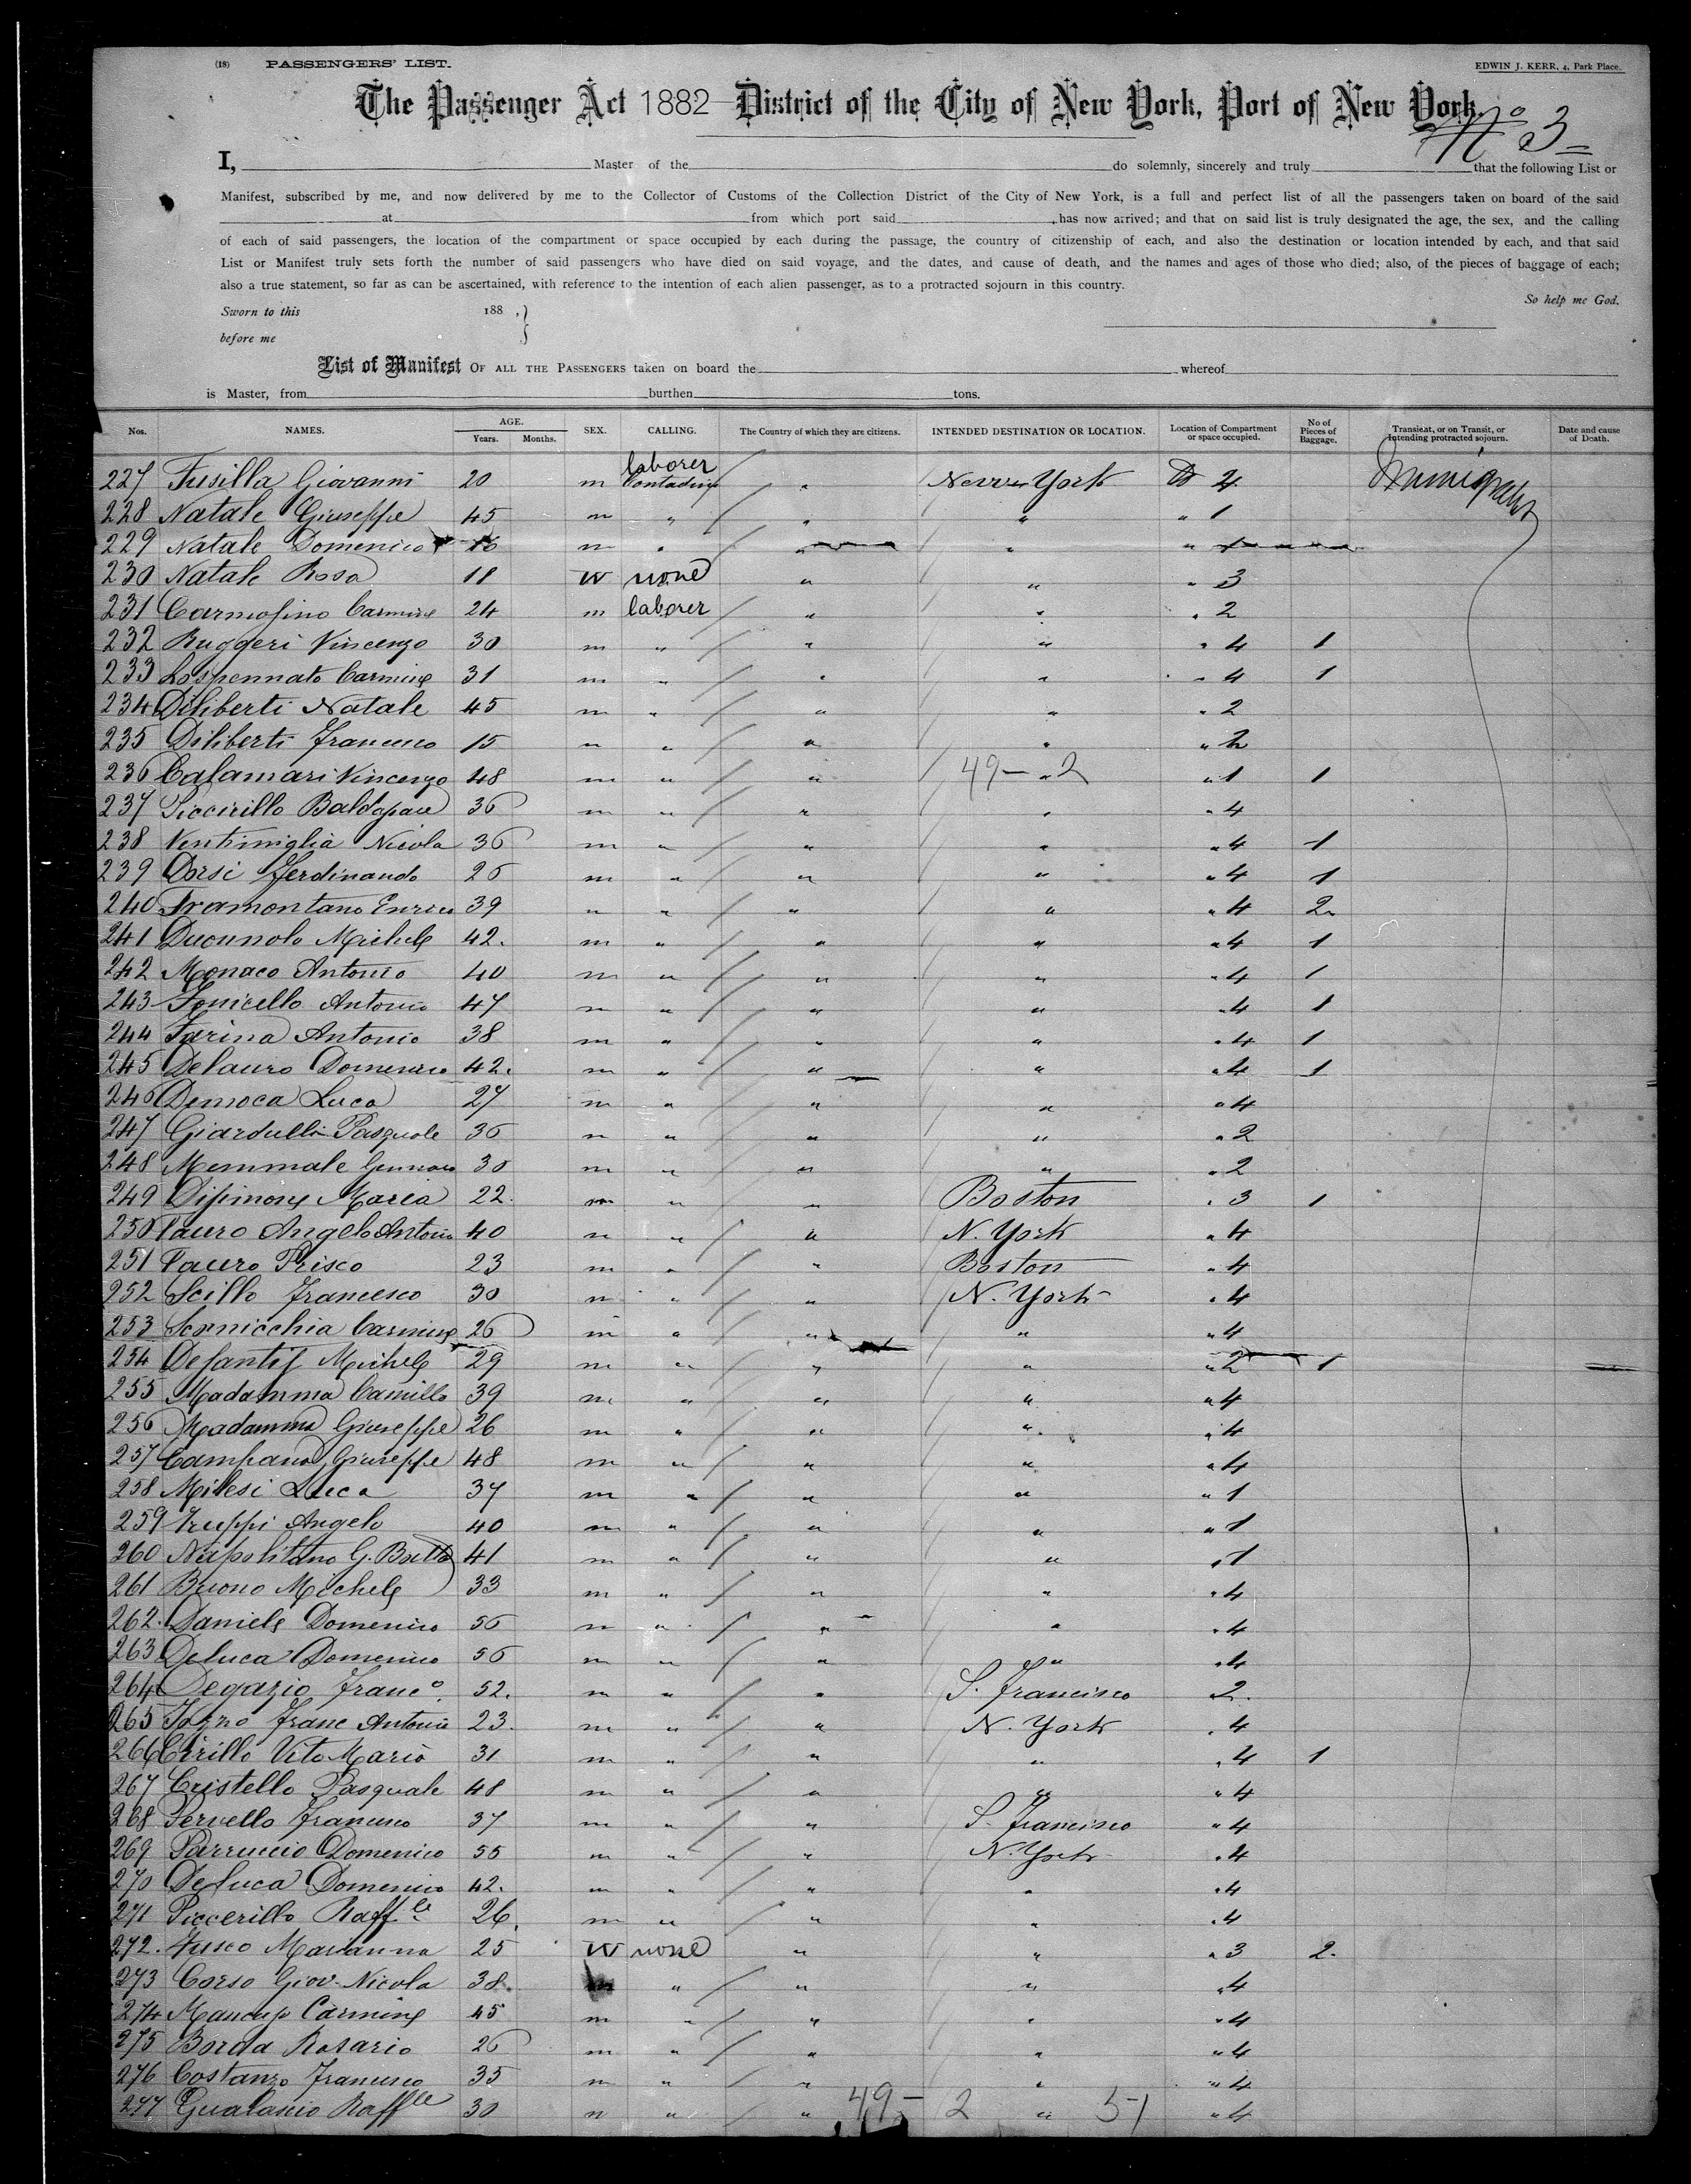 (18) PASSENGERS' LIST. EDWIN J. KERR, 4, Park Place.
The Passenger Act 1882 District of the City of New York, Port of New York.
No 3
I, Master of the do solemnly, sincerely and truly that the following List or
Manifest, subscribed by me, and now delivered by me to the Collector of Customs of the Collection District of the City of New York, is a full and perfect list of all the passengers taken on board of the said
at from which port said , has now arrived; and that on said list is truly designated the age, the sex, and the calling
of each of said passengers, the location of the compartment or space occupied by each during the passage, the country of citizenship of each, and also the destination or location intended by each, and that said
List or Manifest truly sets forth the number of said passengers who have died on said voyage, and the dates, and cause of death, and the names and ages of those who died; also, of the pieces of baggage of each;
also a true statement, so far as can be ascertained, with reference to the intention of each alien passenger, as to a protracted sojourn in this country.
So help me God.
Sworn to this 188 , }
before me
List of Manifest OF ALL THE PASSENGERS taken on board the whereof
is Master, from burthen tons.
Nos. NAMES. AGE. Years. Months. SEX. CALLING. The Country of which they are citizens. INTENDED DESTINATION OR LOCATION. Location of Compartment or space occupied. No of Pieces of Baggage. Transient, or on Transit, or Intending protracted sojourn. Date and cause of Death.
laborer
227 Fusilla Giovanni 20 m Contadino " New York D 4
228 Natale Giuseppe 45 m " " " " 1
229 Natale Domenico 16 m " " " " 1
230 Natale Rosa 18 W none " " " 3
231 Carmosino Carmine 24 m laborer " " " 2
232 Ruggeri Vincenzo 30 m " " " " 4 1
233 Lospennato Carmine 31 m " " " " 4 1
234 Diliberti Natale 45 m " " " " 2
235 Diliberti Francesco 15 " " " " " 2
236 Calamari Vincenzo 48 m " " 49 - " 2 " 1 1
237 Piccirillo Baldassare 36 m " " " " 4
238 Ventimiglia Nicola 36 m " " " " 4 1
239 Orsi Ferdinando 26 m " " " " 4 1
240 Tramontano Enrico 39 " " " " " 4 2
241 Michele 42. m " " " " 4 1
242 Monaco Antonio 40 m " " " " 4 1
243 Fonicello Antonio 47 m " " " " 4 1
244 Farina Antonio 38 m " " " " 4 1
245 Delauro Domenico 42. m " " " " 4 1
246 Democa Luca 27 m " " " " 4
247 Giardulli Pasquale 36 m " " " " 2
248 Memmale Gennaro 30 m " " " " 2
249 Disimone Maria 22. m " " Boston " 3 1
250 Tauro Angelo Antonio 40 m " " N. York " 4
251 Tauro Prisco 23 m " " Boston " 4
252 Scillo Francesco 30 m " " N. York " 4
253 Scornicchia Carmine 26 m " " " " 4
254 Desantis Michele 29 m " " " " 2 1
255 Madamma Camillo 39 m " " " " 4
256 Madamma Giuseppe 26 m " " " " 4
257 Campano Giuseppe 48 m " " " " 4
258 Milesi Luca 37 m " " " " 1
259 Truppi Angelo 40 m " " " " 1
260 Napolitano G. Batta 41 m " " " " 1
261 Buono Michele 33 m " " " " 4
262. Daniele Domenico 56 m " " " " 4
263 Deluca Domenico 56 m " " " " 4
264 Degazio Franco. 52. m " " S. Francisco " 2.
265 Iozzo Franc Antonio 23. m " " N. York " 4
266 Cirillo Vito Maria 31 m " " " " 4 1
267 Cristello Pasquale 48 m " " " " 4
268 Servello Francesco 37 m " " S. Francisco " 4
269 Parruccio Domenico 55 m " " N. York " 4
270 Deluca Domenico 42. m " " " " 4
271 Piccerillo Raffle 26. m " " " " 4
272. Fusco Marianna 25 W none " " " 3 2.
273 Corso Giov. Nicola 38. m " " " " 4
274 Carmine 45 m " " " " 4
275 Borda Rosario 26 m " " " " 4
276 Costanzo Francesco 35 m " " " " 4
277 Gualascio Raffle 30 m " " 49 - 2 " 51 " 4